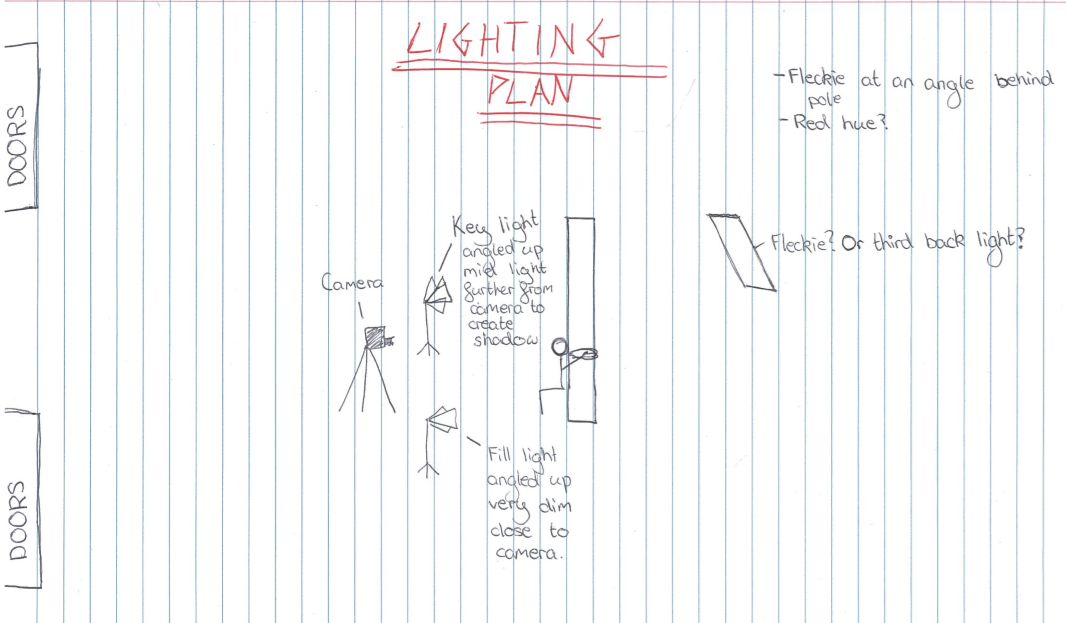 LIGHTING
PLAN
-Fleckie at an angle behind
pole
-Red hue?
DOORS
Key light
angled up
mid light
further from
camera to
create
shadow
Camera
Fleckie? Or third back light?
Fill light
angled up
very dim
close to
camera.
DOORS